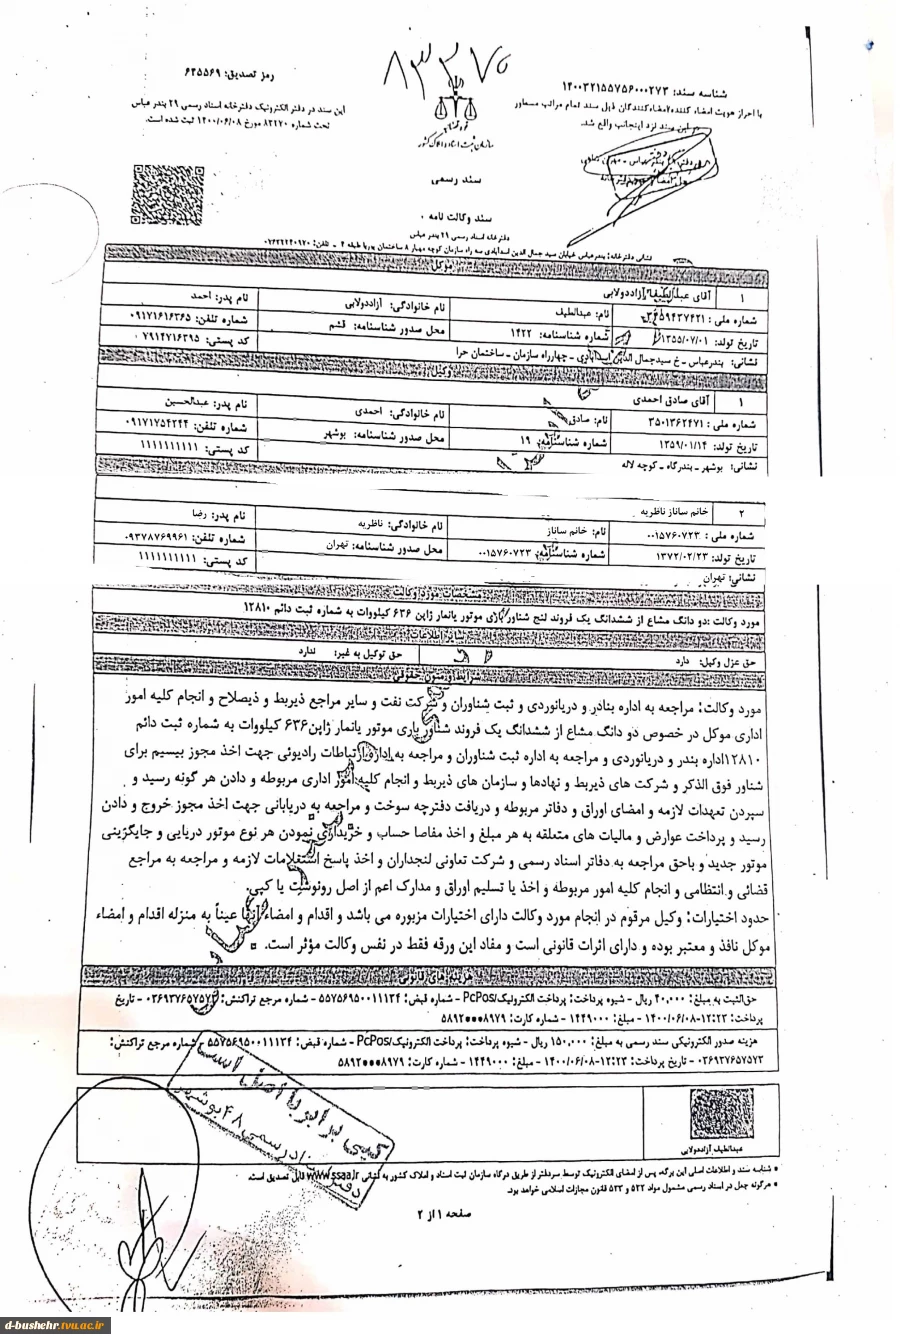 ۸۳۲۷۰
رمز تصدیق: ۶۴۵۵۶۹
شناسه سند: ۱۴۰۰۳۲۱۵۵۷۵۶۰۰۰۲۷۳
این سند در دفتر الکترونیک دفترخانه اسناد رسمی ۲۹ بندر عباس
تحت شماره ۸۳۲۷۰ مورخ ۱۴۰۰/۰۶/۰۸ ثبت شده است.
با احراز هویت امضاء کننده/امضاءکنندگان ذیل سند تمام مراتب مسطور
در این سند نزد اینجانب واقع شد.
قوه قضائیه
سازمان ثبت اسناد و املاک کشور
سند رسمی
سند وکالت نامه
دفترخانه اسناد رسمی ۲۹ بندر عباس
نشانی دفترخانه: بندرعباس خیابان سید جمال الدین اسدآبادی سه راه سازمان کوچه مهیار ۸ ساختمان پوریا طبقه ۴ - تلفن: ۰۷۶۳۲۲۴۰۹۲۰
موکل
۱ آقای عبدالطیف آزاددولابی
شماره ملی : ۳۴۵۹۴۳۷۴۲۱ نام: عبدالطیف نام خانوادگی: آزاددولابی نام پدر: احمد
تاریخ تولد: ۱۳۵۵/۰۷/۰۱ شماره شناسنامه: ۱۴۲۲ محل صدور شناسنامه: قشم شماره تلفن: ۰۹۱۷۱۶۱۶۳۶۵
کد پستی: ۷۹۱۴۷۱۶۳۹۵
نشانی: بندرعباس - خ سیدجمال الدین اسدآبادی - چهارراه سازمان - ساختمان حرا
وکیل
۱ آقای صادق احمدی
شماره ملی : ۳۵۰۱۳۶۲۴۷۱ نام: صادق نام خانوادگی: احمدی نام پدر: عبدالحسین
تاریخ تولد: ۱۳۵۹/۰۱/۱۴ شماره شناسنامه: ۱۹ محل صدور شناسنامه: بوشهر شماره تلفن: ۰۹۱۷۱۷۵۴۲۴۴
کد پستی: ۱۱۱۱۱۱۱۱۱۱
نشانی: بوشهر - بندرگاه - کوچه لاله
۲ خانم ساناز ناظریه
شماره ملی : ۰۰۱۵۷۶۰۷۲۳ نام: خانم ساناز نام خانوادگی: ناظریه نام پدر: رضا
تاریخ تولد: ۱۳۷۲/۰۲/۲۳ شماره شناسنامه: ۰۰۱۵۷۶۰۷۲۳ محل صدور شناسنامه: تهران شماره تلفن: ۰۹۳۷۸۷۶۹۹۶۱
کد پستی: ۱۱۱۱۱۱۱۱۱۱
نشانی: تهران
مشخصات مورد وکالت
مورد وکالت :دو دانگ مشاع از ششدانگ یک فروند لنج شناور باری موتور یانمار ژاپن ۶۳۶ کیلووات به شماره ثبت دائم ۱۲۸۱۰
سایر اطلاعات
حق عزل وکیل: دارد حق توکیل به غیر: ندارد
شرایط و متون حقوقی
مورد وکالت: مراجعه به اداره بنادر و دریانوردی و ثبت شناوران و شرکت نفت و سایر مراجع ذیربط و ذیصلاح و انجام کلیه امور
اداری موکل در خصوص دو دانگ مشاع از ششدانگ یک فروند شناور باری موتور یانمار ژاپن۶۳۶ کیلووات به شماره ثبت دائم
۱۲۸۱۰اداره بندر و دریانوردی و مراجعه به اداره ثبت شناوران و مراجعه به اداره ارتباطات رادیوئی جهت اخذ مجوز بیسیم برای
شناور فوق الذکر و شرکت های ذیربط و نهادها و سازمان های ذیربط و انجام کلیه امور اداری مربوطه و دادن هر گونه رسید و
سپردن تعهدات لازمه و امضای اوراق و دفاتر مربوطه و دریافت دفترچه سوخت و مراجعه به دریابانی جهت اخذ مجوز خروج و دادن
رسید و پرداخت عوارض و مالیات های متعلقه به هر مبلغ و اخذ مفاصا حساب و خریداری نمودن هر نوع موتور دریایی و جایگزینی
موتور جدید و باحق مراجعه به دفاتر اسناد رسمی و شرکت تعاونی لنجداران و اخذ پاسخ استعلامات لازمه و مراجعه به مراجع
قضائی و انتظامی و انجام کلیه امور مربوطه و اخذ یا تسلیم اوراق و مدارک اعم از اصل رونوشت یا کپی.
حدود اختیارات: وکیل مرقوم در انجام مورد وکالت دارای اختیارات مزبوره می باشد و اقدام و امضاء آنها عیناً به منزله اقدام و امضاء
موکل نافذ و معتبر بوده و دارای اثرات قانونی است و مفاد این ورقه فقط در نفس وکالت مؤثر است.
هزینه های قانونی
حق‌الثبت به مبلغ: ۴۰,۰۰۰ ریال - شیوه پرداخت: پرداخت الکترونیک/PcPos - شماره قبض: ۵۵۷۵۶۹۵۰۰۱۱۱۳۴ - شماره مرجع تراکنش: ۰۳۶۹۳۷۶۵۷۵۷۳ - تاریخ
پرداخت: ۱۲:۲۳-۱۴۰۰/۰۶/۰۸ - مبلغ: ۱۴۴۹۰۰۰ - شماره کارت: ۵۸۹۲●●●۸۹۷۹
هزینه صدور الکترونیکی سند رسمی به مبلغ: ۱۵۰,۰۰۰ ریال - شیوه پرداخت: پرداخت الکترونیک/PcPos - شماره قبض: ۵۵۷۵۶۹۵۰۰۱۱۱۳۴ - شماره مرجع تراکنش:
۰۳۶۹۳۷۶۵۷۵۷۳ - تاریخ پرداخت: ۱۲:۲۳-۱۴۰۰/۰۶/۰۸ - مبلغ: ۱۴۴۹۰۰۰ - شماره کارت: ۵۸۹۲●●●۸۹۷۹
کپی برابر با اصل است
دفتر اسناد رسمی ۴۸ بوشهر
عبدالطیف آزاددولابی
* شناسه سند و اطلاعات اصلی این برگه، پس از امضای الکترونیک توسط سردفتر از طریق درگاه سازمان ثبت اسناد و املاک کشور به نشانی www.ssaa.ir قابل تصدیق است.
* هرگونه جعل در اسناد رسمی مشمول مواد ۵۳۲ و ۵۳۳ قانون مجازات اسلامی خواهد بود.
صفحه ۱ از ۲
d-bushehr.tvu.ac.ir